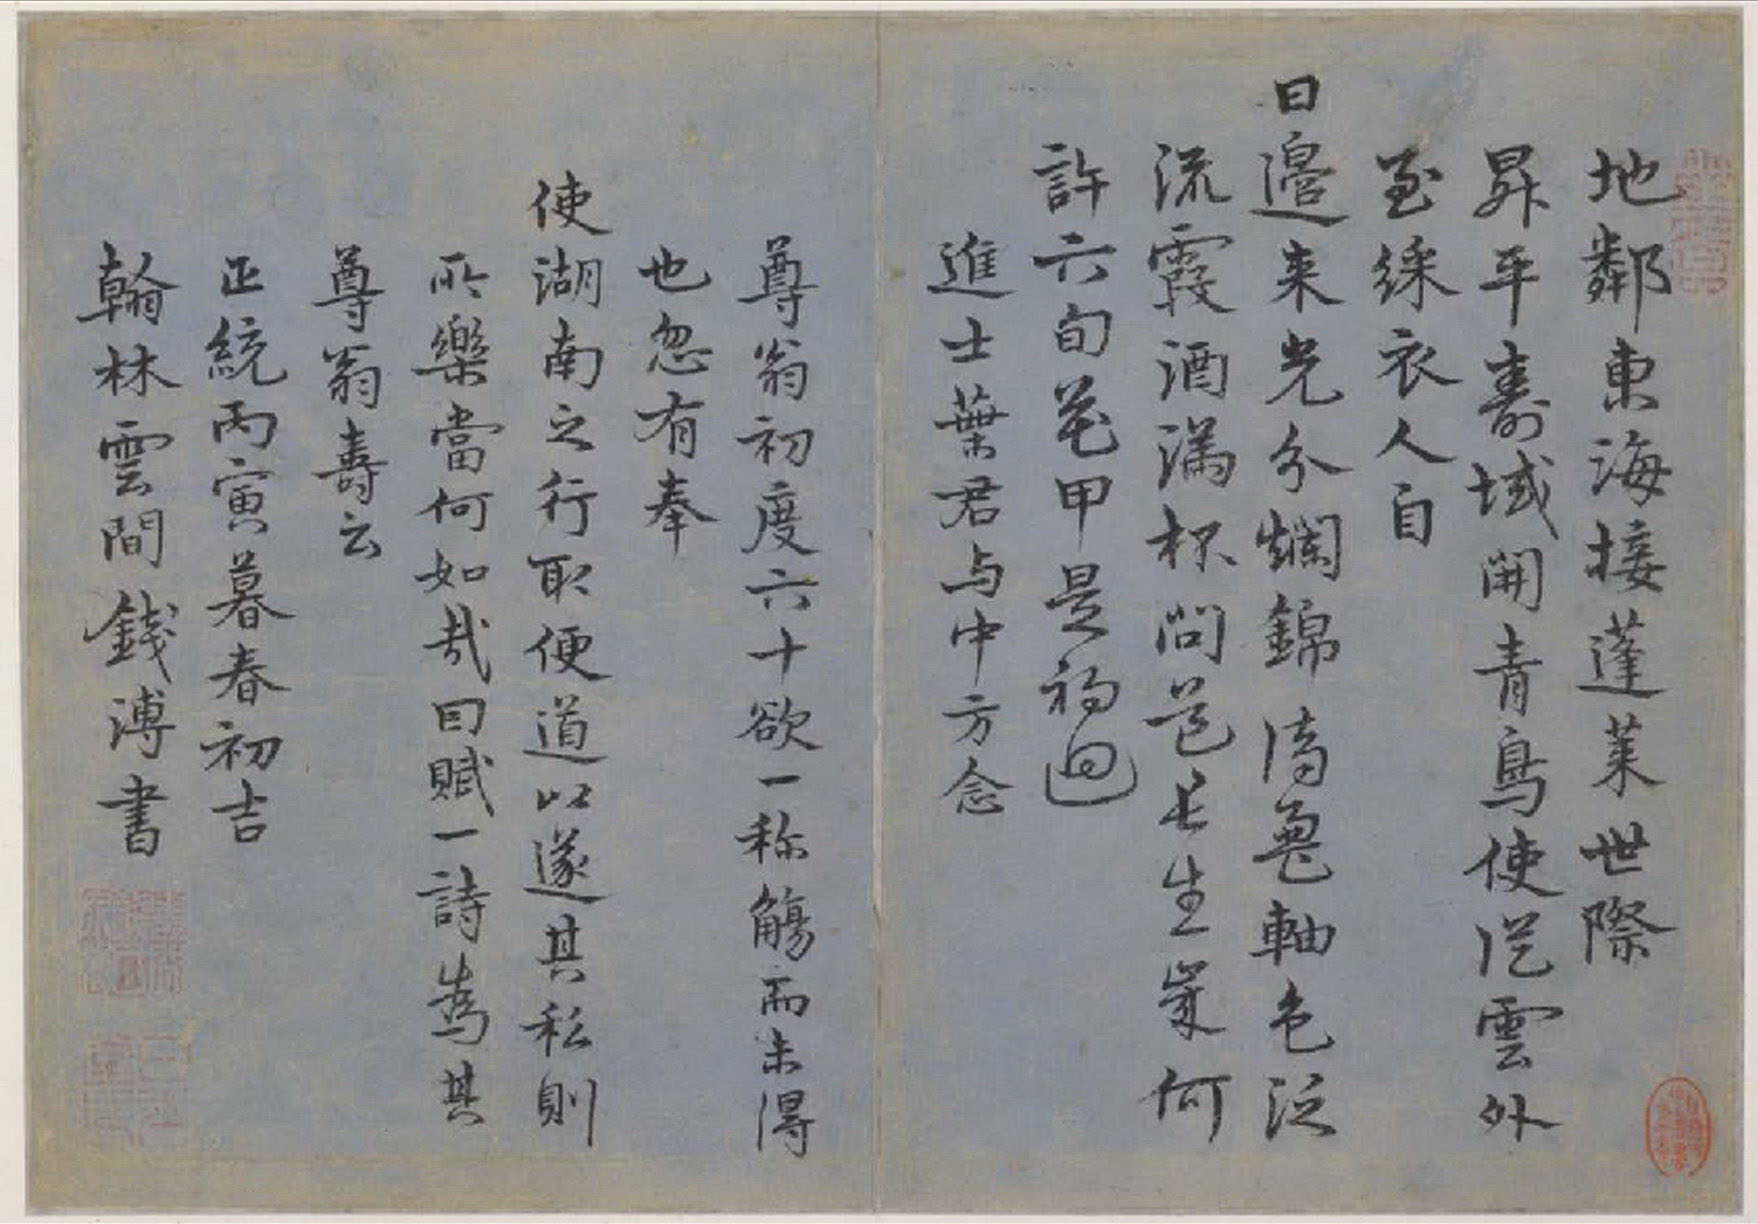 地鄰東海接蓬萊世際
昇平壽域開青鳥使從雲外
至綵衣人自
日邊來光分爛錦濤鳧軸色泛
流霞酒滿杯問荅長生歲何
許六旬花甲是初迴
進士葉君与中方念
尊翁初度六十欲一称觴而未得
也忽有奉
使湖南之行取便道以遂其私則
所樂當何如哉曰賦一詩為其
尊翁壽云
正統丙寅暮春初吉
翰林雲間錢溥書